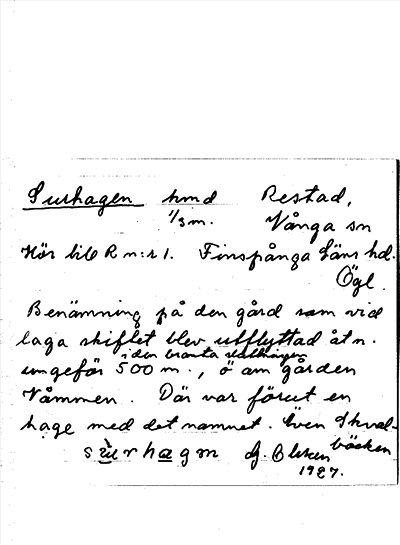 Surhagen hmd Restad,
1/3 m. Vånga sn
Hör till R n:r 1. Finspånga läns hd.
Ögl.
Benämning på den gård som vid
laga skiftet blev utflyttad åt n.
i den branta sluttningen
ungefär 500 m., ö om gården
Våmmen. Där var förut en
hage med det namnet. Även Skval-
bäcken
surhagm G. Olsson
1927.